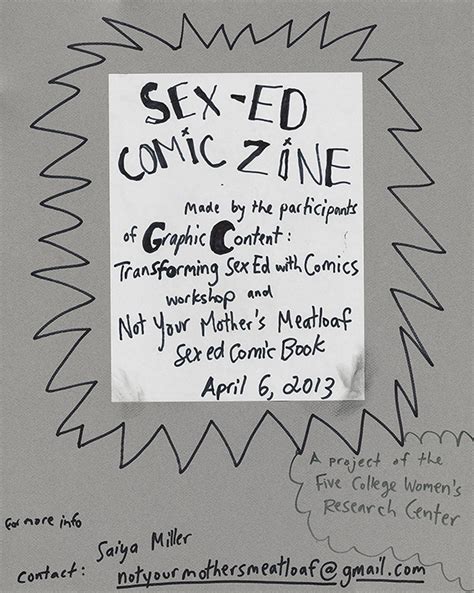 SEX-ED
COMIC ZINE
Made by the participants
of Graphic Content:
Transforming Sex Ed with Comics
workshop and
Not Your Mother's Meatloaf
Sex ed Comic Book
April 6, 2013
A project of the
Five College Women's
Research Center
For more info
Saiya Miller
contact: notyourmothersmeatloaf@gmail.com